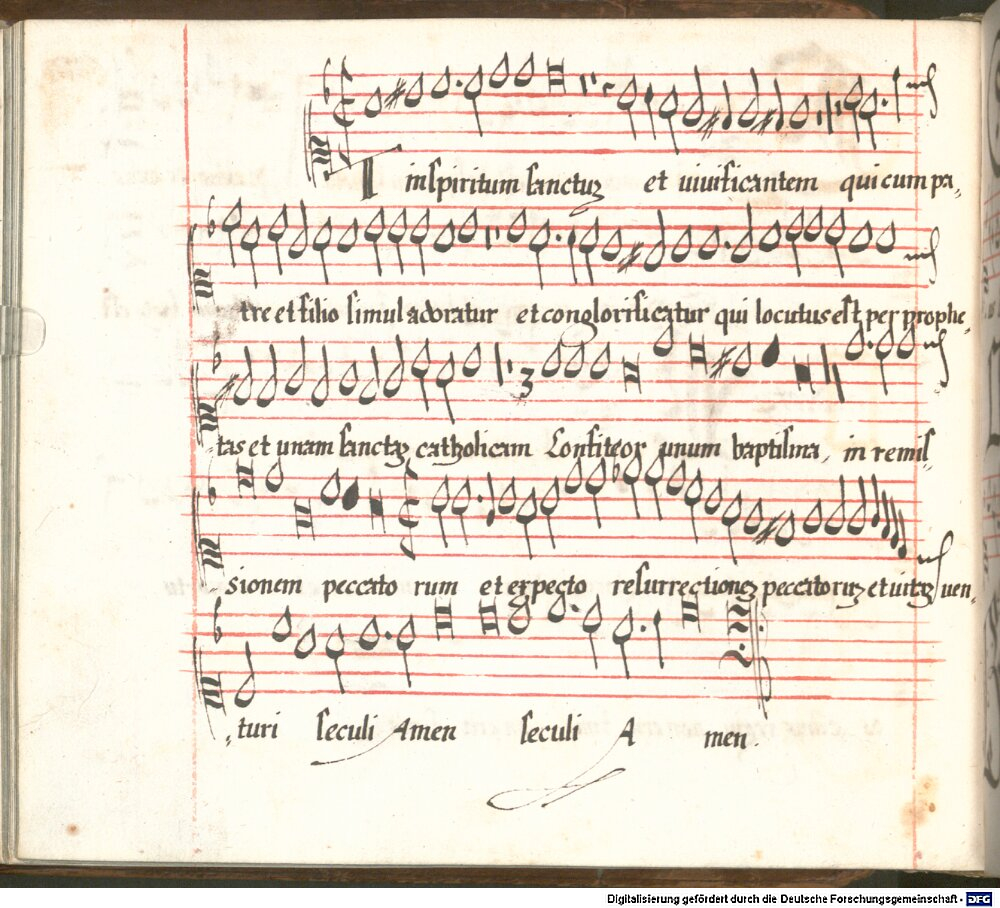 in spiritum sanctuʒ et uiuificantem qui cum pa,
tre et filio simul adoratur et conglorificatur qui locutus est per prophe,
tas et unam sanctaʒ catholicam Confiteor unum baptisma, in remis-
sionem peccato rum et expecto resurrectioneʒ peccatoruʒ et uitaʒ uen,
,turi seculi Amen seculi A men.
Digitalisierung gefördert durch die Deutsche Forschungsgemeinschaft - DFG